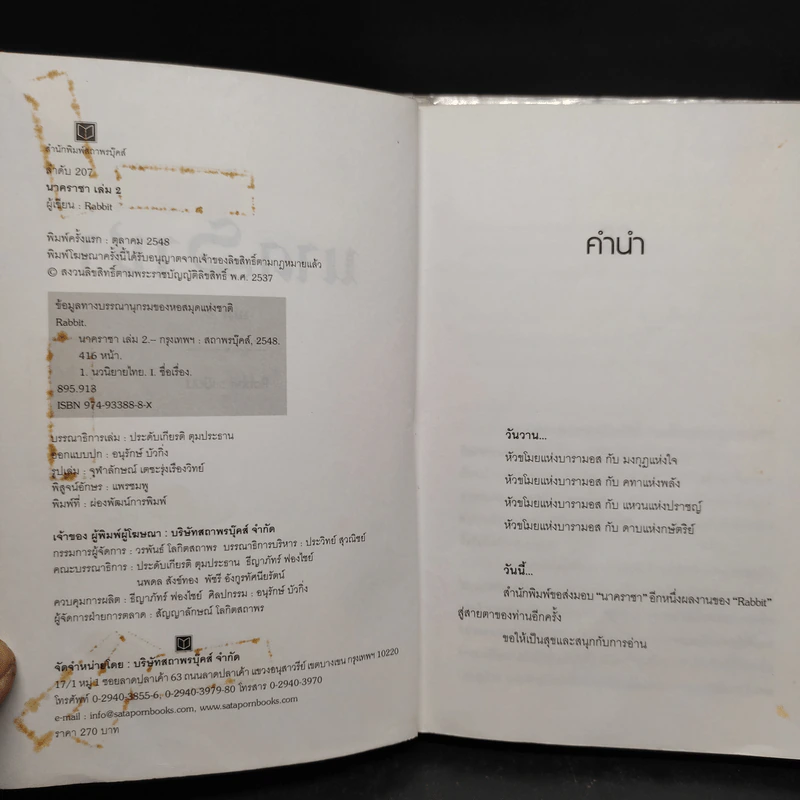 สำนักพิมพ์สถาพรบุ๊คส์
ลำดับ 207
นาคราชา เล่ม 2
ผู้เขียน : Rabbit
พิมพ์ครั้งแรก : ตุลาคม 2548
พิมพ์โฆษณาครั้งนี้ได้รับอนุญาตจากเจ้าของลิขสิทธิ์ตามกฎหมายแล้ว
© สงวนลิขสิทธิ์ตามพระราชบัญญัติลิขสิทธิ์ พ.ศ. 2537
ข้อมูลทางบรรณานุกรมของหอสมุดแห่งชาติ
Rabbit.
นาคราชา เล่ม 2.– กรุงเทพฯ : สถาพรบุ๊คส์, 2548.
416 หน้า.
1. นวนิยายไทย. I. ชื่อเรื่อง.
895.913
ISBN 974-93388-8-X
บรรณาธิการเล่ม : ประดับเกียรติ ตุมประธาน
ออกแบบปก : อนุรักษ์ บัวกิ่ง
รูปเล่ม : จุฬาลักษณ์ เตชะรุ่งเรืองวิทย์
พิสูจน์อักษร : แพรชมพู
พิมพ์ที่ : ผ่องพัฒน์การพิมพ์
เจ้าของ ผู้พิมพ์ผู้โฆษณา : บริษัทสถาพรบุ๊คส์ จำกัด
กรรมการผู้จัดการ : วรพันธ์ โลกิตสถาพร บรรณาธิการบริหาร : ประวิทย์ สุวณิชย์
คณะบรรณาธิการ : ประดับเกียรติ ตุมประธาน ธีญาภัทร์ ฟองไชย์
นพดล สังข์ทอง พัชรี อังกูรทัศนียรัตน์
ควบคุมการผลิต : ธีญาภัทร์ ฟองไชย์ ศิลปกรรม : อนุรักษ์ บัวกิ่ง
ผู้จัดการฝ่ายการตลาด : สัญญาลักษณ์ โลกิตสถาพร
จัดจำหน่ายโดย : บริษัทสถาพรบุ๊คส์ จำกัด
17/1 หมู่ 1 ซอยลาดปลาเค้า 63 ถนนลาดปลาเค้า แขวงอนุสาวรีย์ เขตบางเขน กรุงเทพฯ 10220
โทรศัพท์ 0-2940-3855-6, 0-2940-3979-80 โทรสาร 0-2940-3970
e-mail : info@satapornbooks.com, www.satapornbooks.com
ราคา 270 บาท
คำนำ
วันวาน...
หัวขโมยแห่งบารามอส กับ มงกุฎแห่งใจ
หัวขโมยแห่งบารามอส กับ คทาแห่งพลัง
หัวขโมยแห่งบารามอส กับ แหวนแห่งปราชญ์
หัวขโมยแห่งบารามอส กับ ดาบแห่งกษัตริย์
วันนี้...
สำนักพิมพ์ขอส่งมอบ “นาคราชา” อีกหนึ่งผลงานของ “Rabbit”
สู่สายตาของท่านอีกครั้ง
ขอให้เป็นสุขและสนุกกับการอ่าน